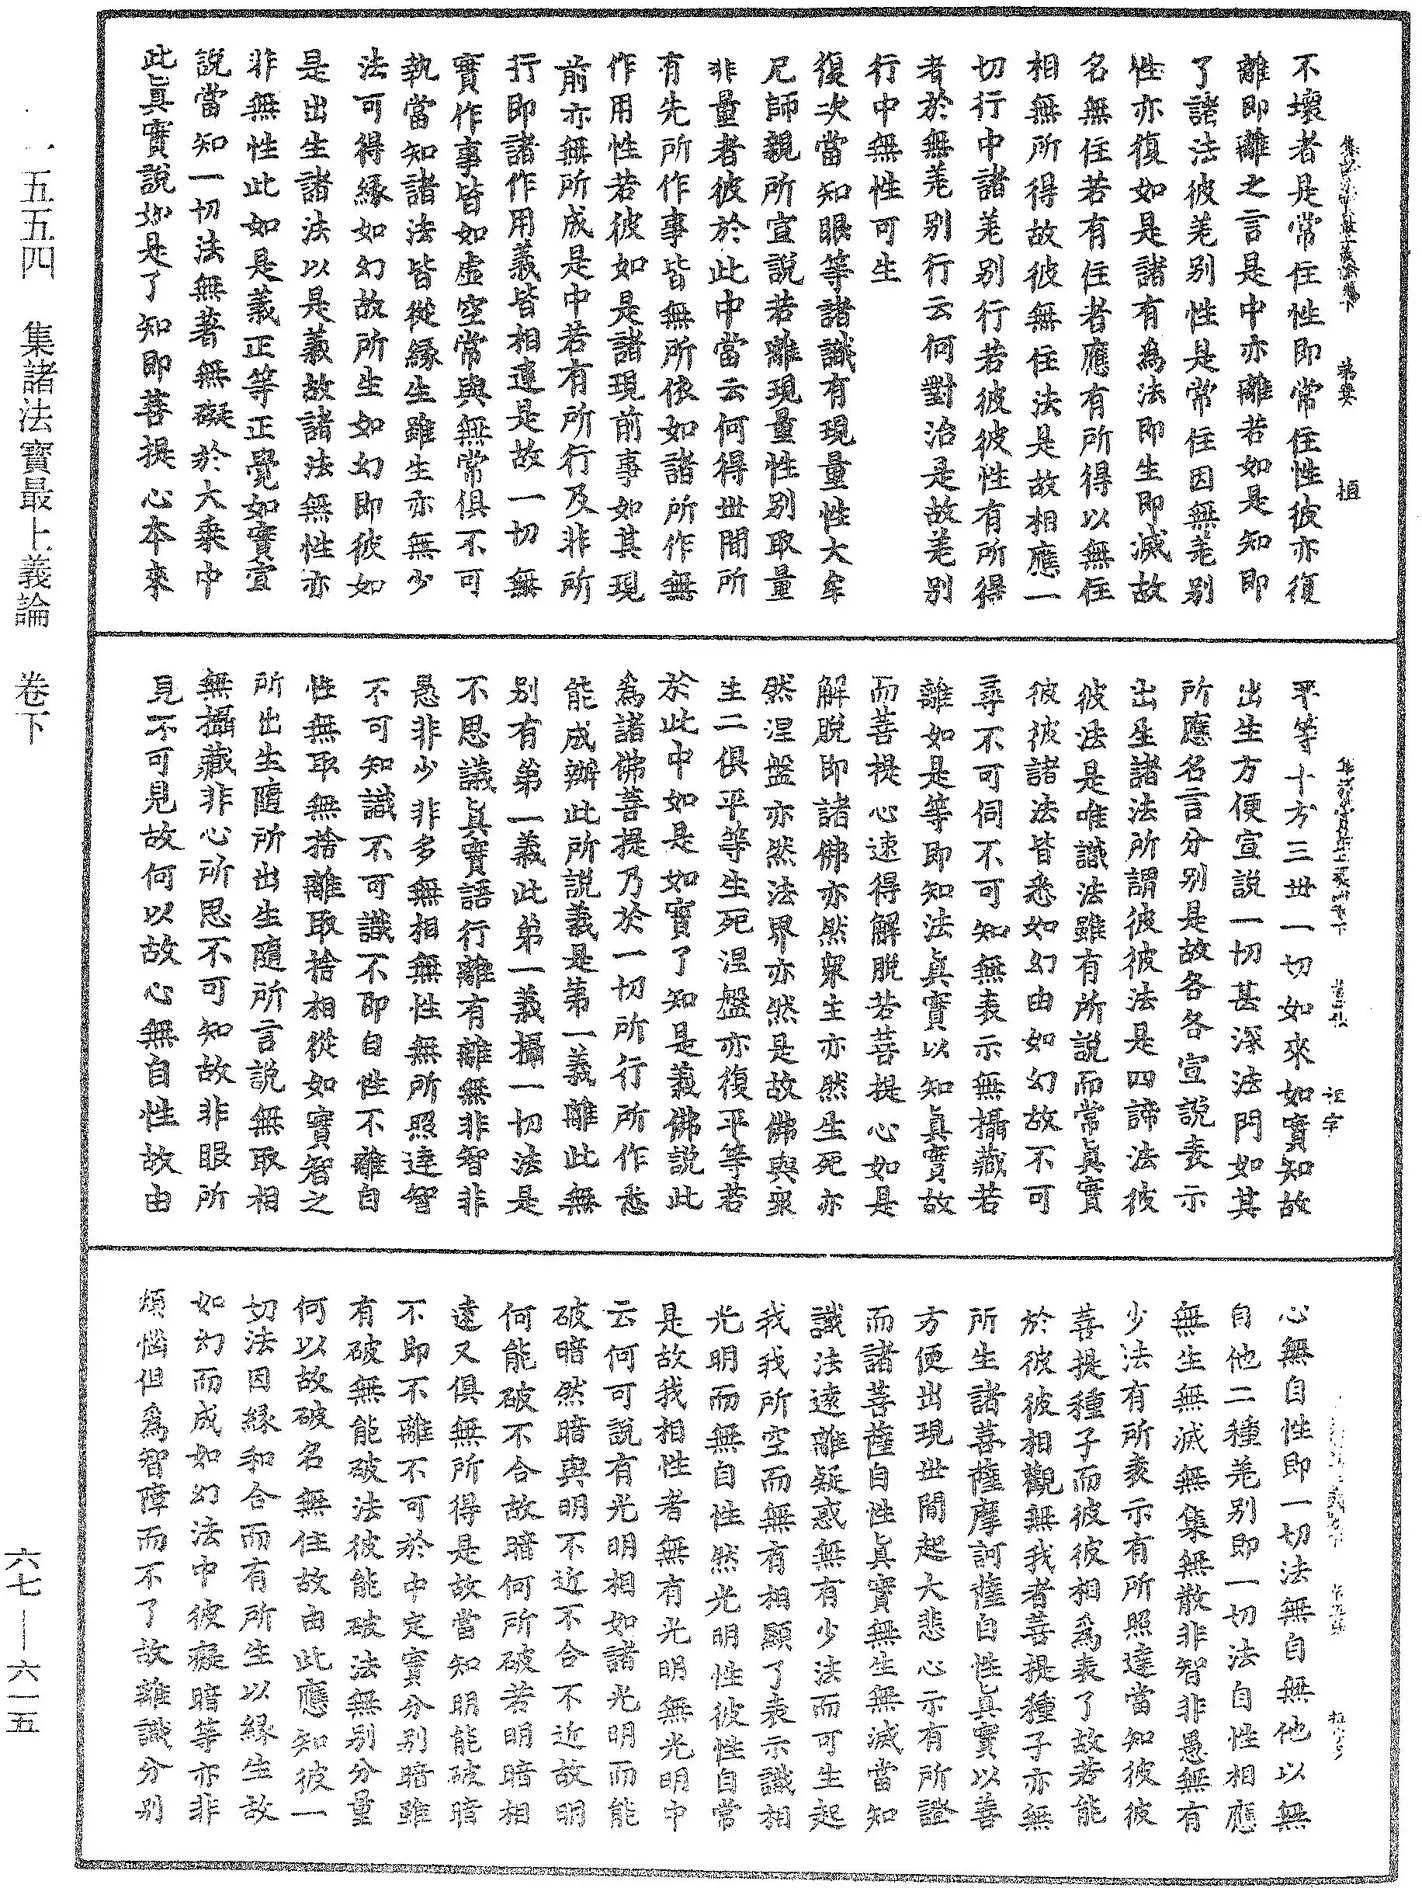 不壞者是常住性即常住性彼亦復
離即離之言是中亦離若如是知即
了諸法彼差别性是常住因無差别
性亦復如是諸有爲法即生即滅故
名無住若有住者應有所得以無住
相無所得故彼無住法是故相應一
切行中諸差别行若彼彼性有所得
者於無差别行云何對治是故差别
行中無性可生
復次當知眼等諸識有現量性大牟
尼師親所宣說若離現量性别取量
非量者彼於此中當云何得世間所
有先所作事皆無所依如諸所作無
作用性若彼如是諸現前事如其現
前亦無所成是中若有所行及非所
行即諸作用義皆相違是故一切無
實作事皆如虛空常與無常俱不可
執當知諸法皆從緣生雖生亦無少
法可得緣如幻故所生如幻即彼如
是出生諸法以是義故諸法無性亦
非無性此如是義正等正覺如實宣
說當知一切法無著無礙於大乘中
此真實說如是了知即菩提心本來
平等十方三世一切如來如實知故
出生方便宣說一切甚深法門如其
所應名言分别是故各各宣說表示
出生諸法所謂彼彼法是四諦法彼
彼法是唯識法雖有所說而常真實
彼彼諸法皆悉如幻由如幻故不可
尋不可伺不可知無表示無攝藏若
離如是等即知法真實以知真實故
而菩提心速得解脫若菩提心如是
解脫即諸佛亦然衆生亦然生死亦
然涅盤亦然法界亦然是故佛與衆
生二俱平等生死涅盤亦復平等若
於此中如是如實了知是義佛說此
爲諸佛菩提乃於一切所行所作悉
能成辦此所說義是第一義離此無
别有第一義此第一義攝一切法是
不思議真實語行離有離無非智非
愚非少非多無相無性無所照達智
不可知識不可識不即自性不離自
性無取無捨離取捨相從如實智之
所出生隨所出生隨所言說無取相
無攝藏非心所思不可知故非眼所
見不可見故何以故心無自性故由
心無自性即一切法無自無他以無
自他二種差别即一切法自性相應
無生無滅無集無散非智非愚無有
少法有所表示有所照達當知彼彼
菩提種子而彼彼相爲表了故若能
於彼彼相觀無我者菩提種子亦無
所生諸菩薩摩訶薩自性真實以善
方便出現世間起大悲心示有所證
而諸菩薩自性真實無生無滅當知
識法遠離疑惑無有少法而可生起
我我所空而無有相顯了表示識相
光明而無自性然光明性彼性自常
是故我相性者無有光明無光明中
云何可說有光明相如諸光明而能
破暗然暗與明不近不合不近故明
何能破不合故暗何所破若明暗相
遠又俱無所得是故當知明能破暗
不即不離不可於中定實分别暗雖
有破無能破法彼能破法無别分量
何以故破名無住故由此應知彼一
切法因緣和合而有所生以緣生故
如幻而成如幻法中彼癡暗等亦非
煩惱但爲智障而不了故離識分别
一五五四 集諸法寶最上義論 卷下
六七—六一五